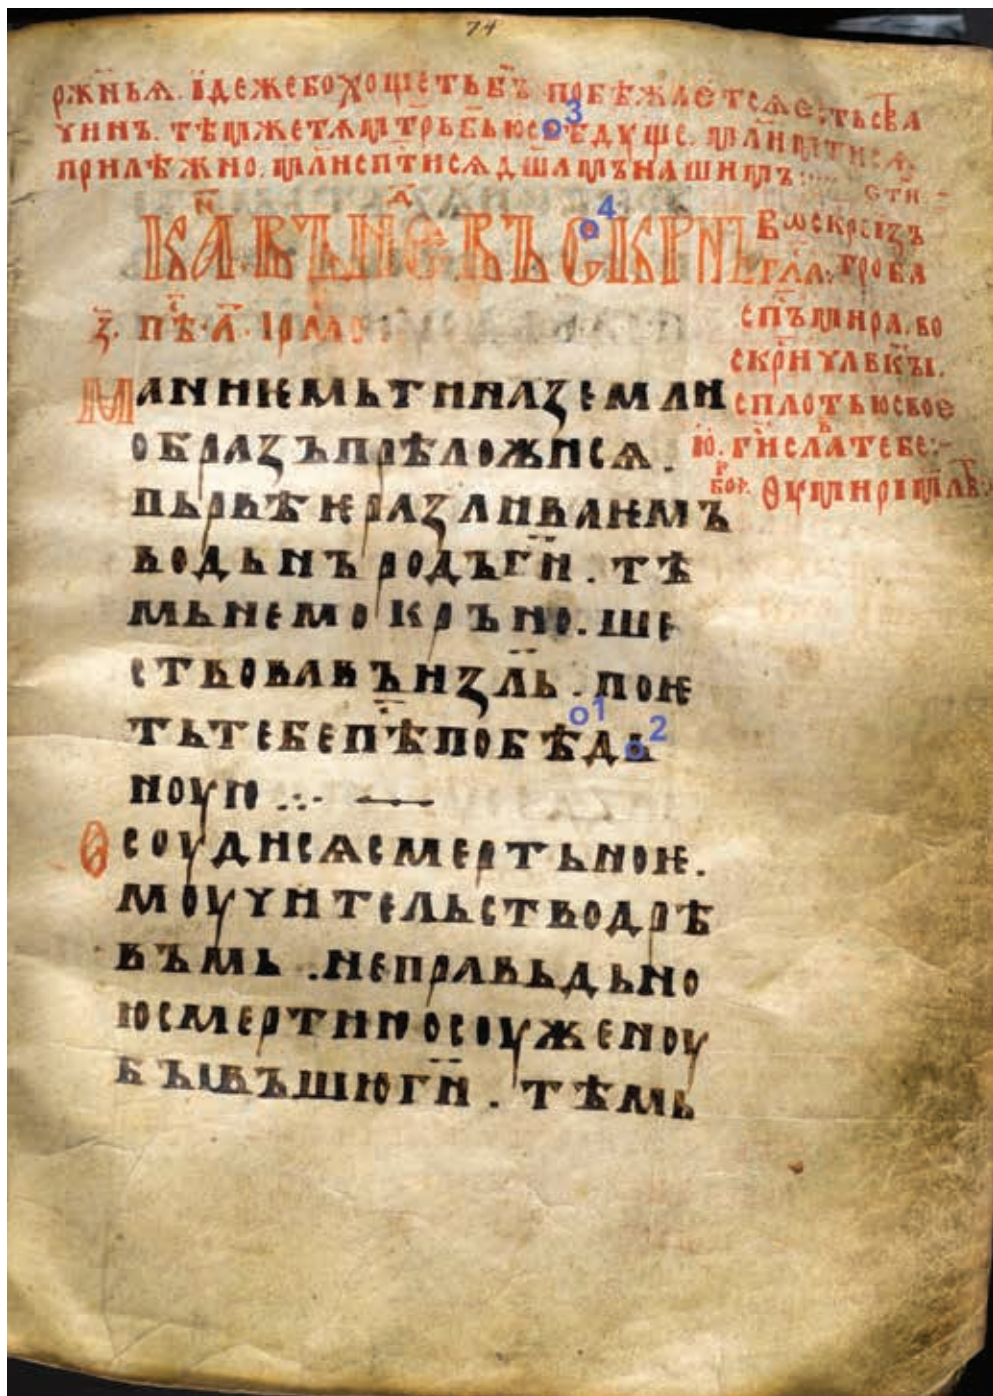 74
ржньѧ. їдежебохощетьб҃ъ побѣжаѐтсѧе҃стьства
чинъ. тѣмжетѧмтрьбьюсвѣдуще. мл҃нмтисѧ.
прилѣжно. мл҃исп҃тисѧдш҃амънашимъ:
КА҃.ВЪН҃Е҃.ВЪСКРН҃Ѣ
з҃. пѣ҃. а҃. Ірмо
стн
въскрсъізъ
гл҃а. гроба
сп҃ъмира. во
скр҃ичл҃вкъі.
сплотьюсвое
ю. гн҃слатебе:-
МАНИЕМЬТИНАЗЕМЛН
ОБРАЗЪПРѢЛОЖИСѦ.
ПЬРВѢЕРАЗЛИВАЕМЪ
ВОДЬНЪРОДЪГ҃И. ТѢ
МЬНЕМОКРЪНО. ШЕ
СТВОВАВЪИЗЛ҃Ь. ПОЕ
ТЬТЕБЕПѢ҃ПОБѢДЬ
НОУЮ
ѲСОУДИСѦСМЕРТЬНОЕ.
МОУЧИТЕЛЬСТВОДРѢ
ВЪМЬ .НЕПРАВЬДЬНО
ЮСМЕРТИЮОСОУЖЕНОУ
БЪІВЪШЮГ҃И. ТѢМЬ
1
2
3
4